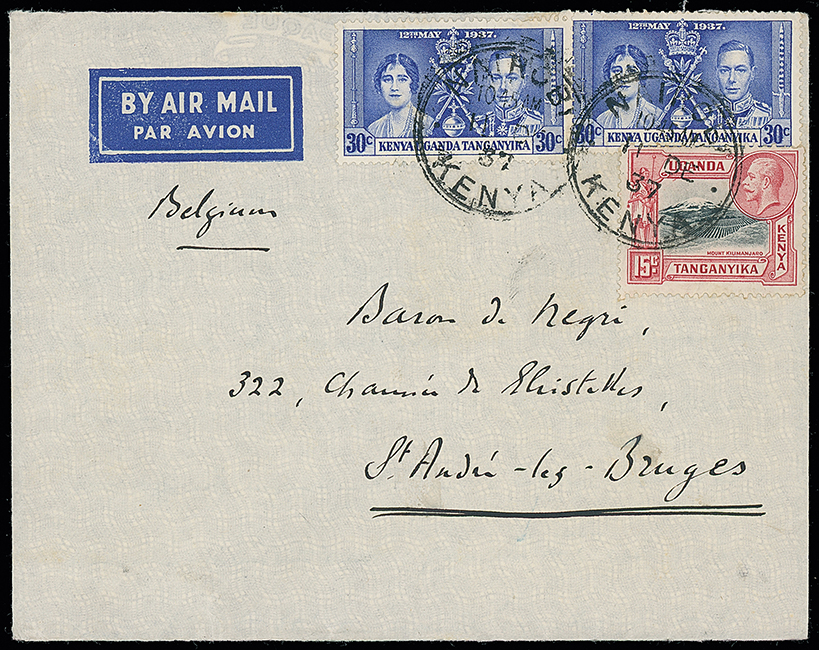 12TH MAY 1937.
30c KENYA UGANDA TANGANYIKA 30c
12TH MAY 1937.
30c KENYA UGANDA TANGANYIKA 30c
BY AIR MAIL
PAR AVION
NAIROBI
10
11
37
KENYA
NAIROBI
10
11 DE
37
KENYA
UGANDA
KENYA
MOUNT KILIMANJARO
15c TANGANYIKA
Belgium
Baron de Negri,
322, Chaussée de
St. André-lez-Bruges